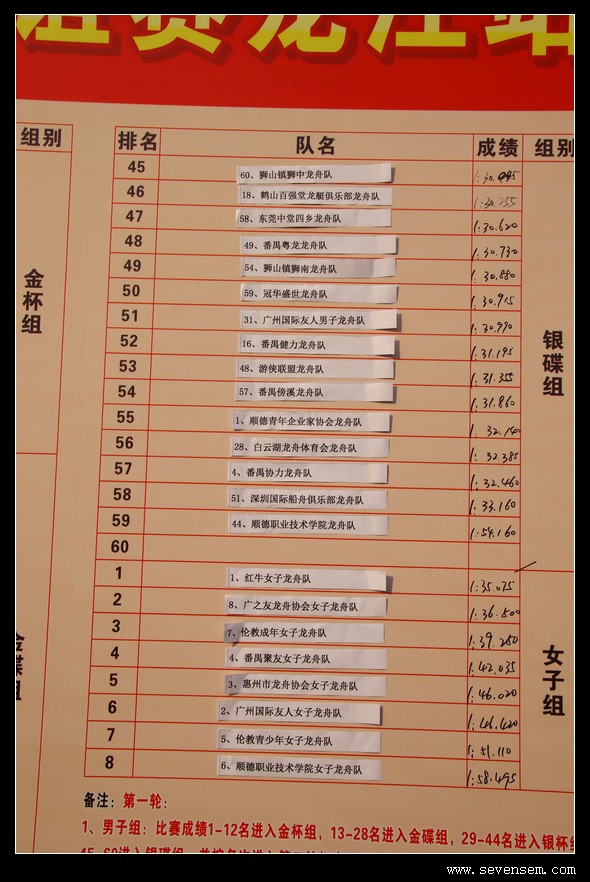 组赛龙江站
组别 排名 队名 成绩 组别
45 60、狮山镇狮中龙舟队
46 18、鹤山百强堂龙艇俱乐部龙舟队 1:30.255
47 58、东莞中堂四乡龙舟队 1:30.620
48 49、番禺粤龙龙舟队 1:30.730
49 54、狮山镇狮南龙舟队 1:30.880
50 59、冠华盛世龙舟队 1:30.915
51 31、广州国际友人男子龙舟队 1:30.990
52 16、番禺健力龙舟队 1:31.195
53 48、游侠联盟龙舟队 1:31.355
54 57、番禺傍溪龙舟队 1:31.860
55 1、顺德青年企业家协会龙舟队 1:32.140
56 28、白云湖龙舟体育会龙舟队 1:32.385
57 4、番禺协力龙舟队 1:32.460
58 51、深圳国际船舟俱乐部龙舟队 1:33.160
59 44、顺德职业技术学院龙舟队 1:54.160
60
金杯组
银碟组
1 1、红牛女子龙舟队 1:35.075
2 8、广之友龙舟协会女子龙舟队 1:36.500
3 7、伦教成年女子龙舟队 1:39.280
4 4、番禺聚友女子龙舟队 1:42.035
5 3、惠州市龙舟协会女子龙舟队 1:46.020
6 2、广州国际友人女子龙舟队 1:46.420
7 5、伦教青少年女子龙舟队 1:51.110
8 6、顺德职业技术学院女子龙舟队 1:58.495
金碟组
女子组
备注：第一轮：
1、男子组：比赛成绩1-12名进入金杯组，13-28名进入金碟组，29-44名进入银杯组
www.sevensem.com